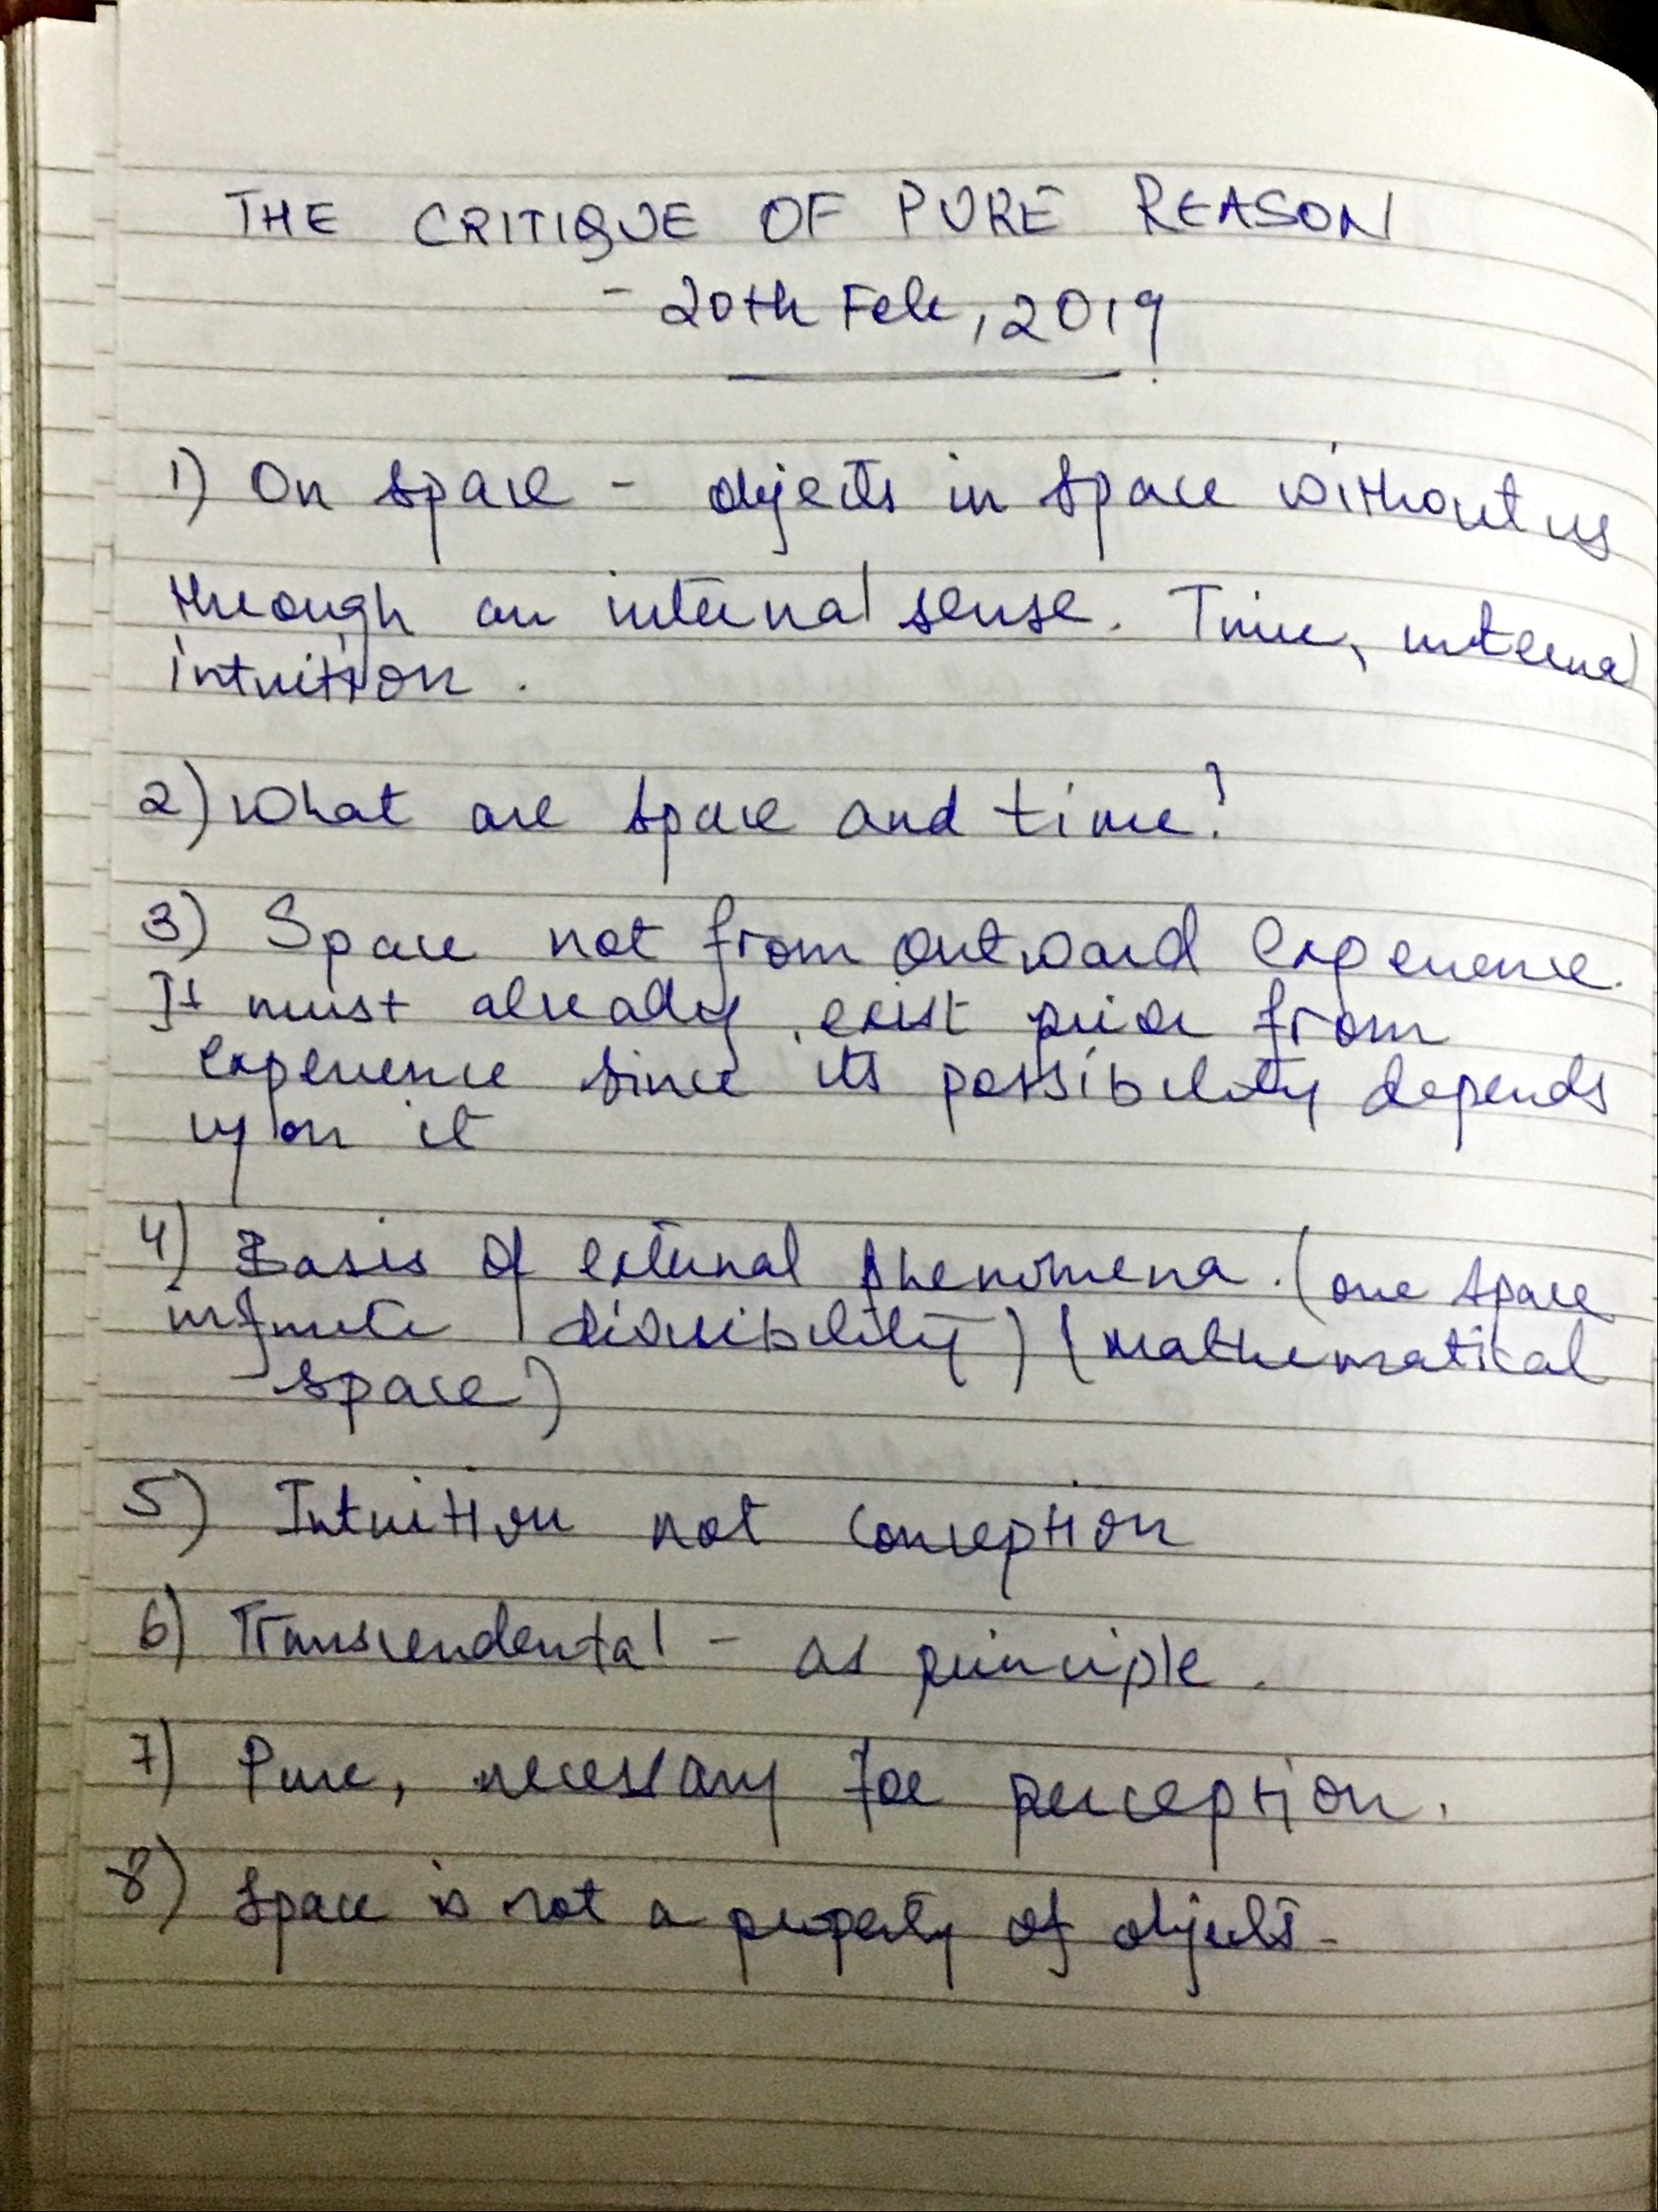 THE CRITIQUE OF PURE REASON
- 20th Feb, 2019
1) On space - objects in space without us
through an internal sense. Time, internal
intuition.
2) What are space and time?
3) Space not from outward experience.
It must already exist prior from
experience since its possibility depends
upon it
4) Basis of external phenomena. (one space
infinite divisibility) (mathematical
space)
5) Intuition not conception
6) Transcendental - as principle.
7) Pure, necessary for perception.
8) Space is not a property of objects-